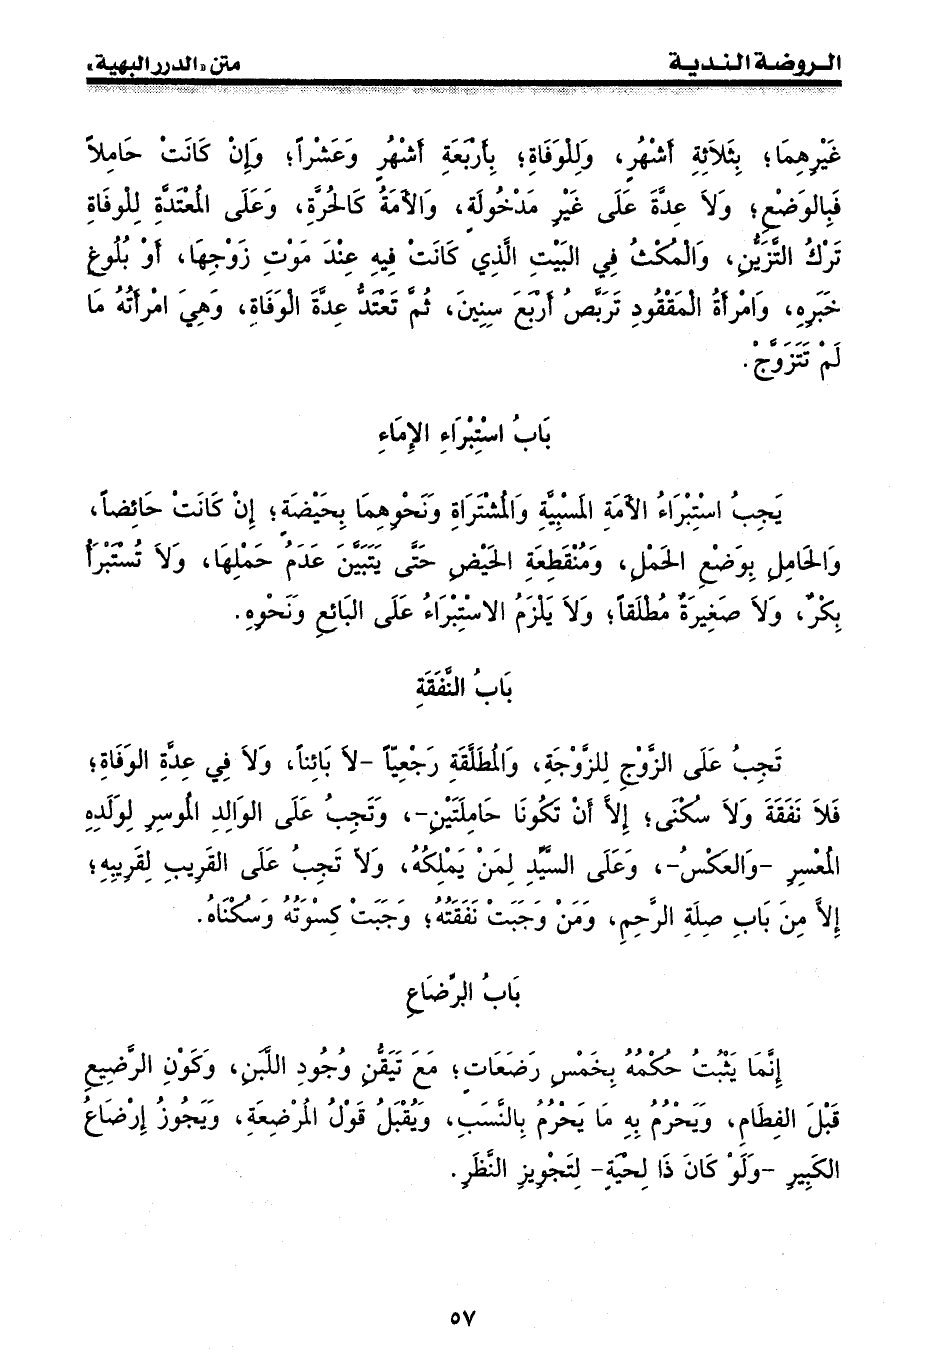 الروضة الندية
متن «الدرر البهية»
غَيْرِهِمَا؛ بِثَلَاثَةِ أَشْهُرٍ، وَلِلْوَفَاةِ؛ بِأَرْبَعَةِ أَشْهُرٍ وَعَشْراً؛ وَإِنْ كَانَتْ حَامِلاً
فَبِالوَضْعِ؛ وَلاَ عِدَّةَ عَلَى غَيْرِ مَدْخُولَةٍ، وَالأَمَةُ كَالحُرَّةِ، وَعَلَى الْمُعْتَدَّةِ لِلْوفَاةِ
تَرْكُ التَّزَيُّنِ، وَالْمُكْثُ فِي البَيْتِ الَّذِي كَانَتْ فِيهِ عِنْدَ مَوْتِ زَوْجِهَا، أَوْ بُلُوغِ
خَبَرِهِ، وَامْرَأَةُ الْمَفْقُودِ تَرَبَّصُ أَرْبَعَ سِنِينَ، ثُمَّ تَعْتَدُّ عِدَّةَ الْوَفَاةِ، وَهِيَ امْرَأَتُهُ مَا
لَمْ تَتَزَوَّجْ.
بَابُ اسْتِبْرَاءِ الإِمَاءِ
يَجِبُ اسْتِبْرَاءُ الأَمَةِ الْمَسْبِيَّةِ وَالْمُشْتَرَاةِ وَنَحْوِهِمَا بِحَيْضَةٍ؛ إِنْ كَانَتْ حَائِضاً،
وَالحَامِلِ بِوَضْعِ الحَمْلِ، وَمُنْقَطِعَةِ الحَيْضِ حَتَّى يَتَبَيَّنَ عَدَمُ حَمْلِهَا، وَلاَ تُسْتَبْرَأُ
بِكْرٌ، وَلاَ صَغِيرَةٌ مُطْلَقاً؛ وَلاَ يَلْزَمُ الاسْتِبْرَاءُ عَلَى البَائِعِ وَنَحْوِهِ.
بَابُ النَّفَقَةِ
تَجِبُ عَلَى الزَّوْجِ لِلزَّوْجَةِ، وَالْمُطَلَّقَةِ رَجْعِيّاً -لاَ بَائِناً، وَلاَ فِي عِدَّةِ الوَفَاةِ؛
فَلاَ نَفَقَةَ وَلاَ سُكْنَى؛ إِلاَّ أَنْ تَكُونَا حَامِلَتَيْنِ-، وَتَجِبُ عَلَى الوَالِدِ الْمُوسِرِ لِوَلَدِهِ
الْمُعْسِرِ -وَالعَكْسُ-، وَعَلَى السَّيِّدِ لِمَنْ يَمْلِكُهُ، وَلاَ تَجِبُ عَلَى القَرِيبِ لِقَرِيبِهِ؛
إِلاَّ مِنَ بَابِ صِلَةِ الرَّحِمِ، وَمَنْ وَجَبَتْ نَفَقَتُهُ؛ وَجَبَتْ كِسْوَتُهُ وَسُكْنَاهُ.
بَابُ الرِّضَاعِ
إِنَّمَا يَثْبُتُ حُكْمُهُ بِخَمْسِ رَضَعَاتٍ؛ مَعَ تَيَقُّنِ وُجُودِ اللَّبَنِ، وَكَوْنِ الرَّضِيعِ
قَبْلَ الفِطَامِ، وَيَحْرُمُ بِهِ مَا يَحْرُمُ بِالنَّسَبِ، وَيُقْبَلُ قَوْلُ الْمُرْضِعَةِ، وَيَجُوزُ إِرْضَاعُ
الكَبِيرِ -وَلَوْ كَانَ ذَا لِحْيَةٍ- لِتَجْوِيزِ النَّظَرِ.
٥٧